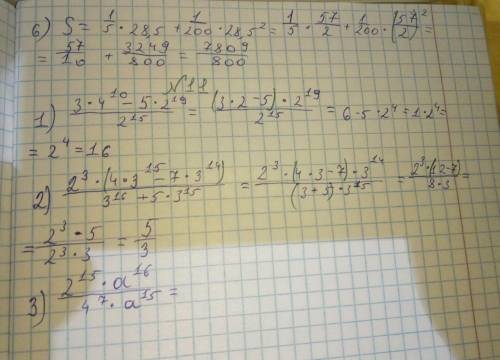 6) S = 1/5 · 28,5 + 1/200 · 28,5² = 1/5 · 57/2 + 1/200 · (57/2)² =
= 57/10 + 3249/800 = 7809/800
№11
1) (3·4¹⁰ - 5·2¹⁹)/2¹⁵ = ((3·2-5)·2¹⁹)/2¹⁵ = 6-5·2⁴ = 1·2⁴ =
= 2⁴ = 16
2) (2³·(4·3¹⁵ - 7·3¹⁴))/(3¹⁶ + 5·3¹⁵) = (2³·(4·3-7)·3¹⁴)/((3+5)·3¹⁵) = (2³·(12-7))/(8·3) =
= (2³·5)/(2³·3) = 5/3
3) (2¹⁵·a¹⁶)/(4⁷·a¹⁵) =